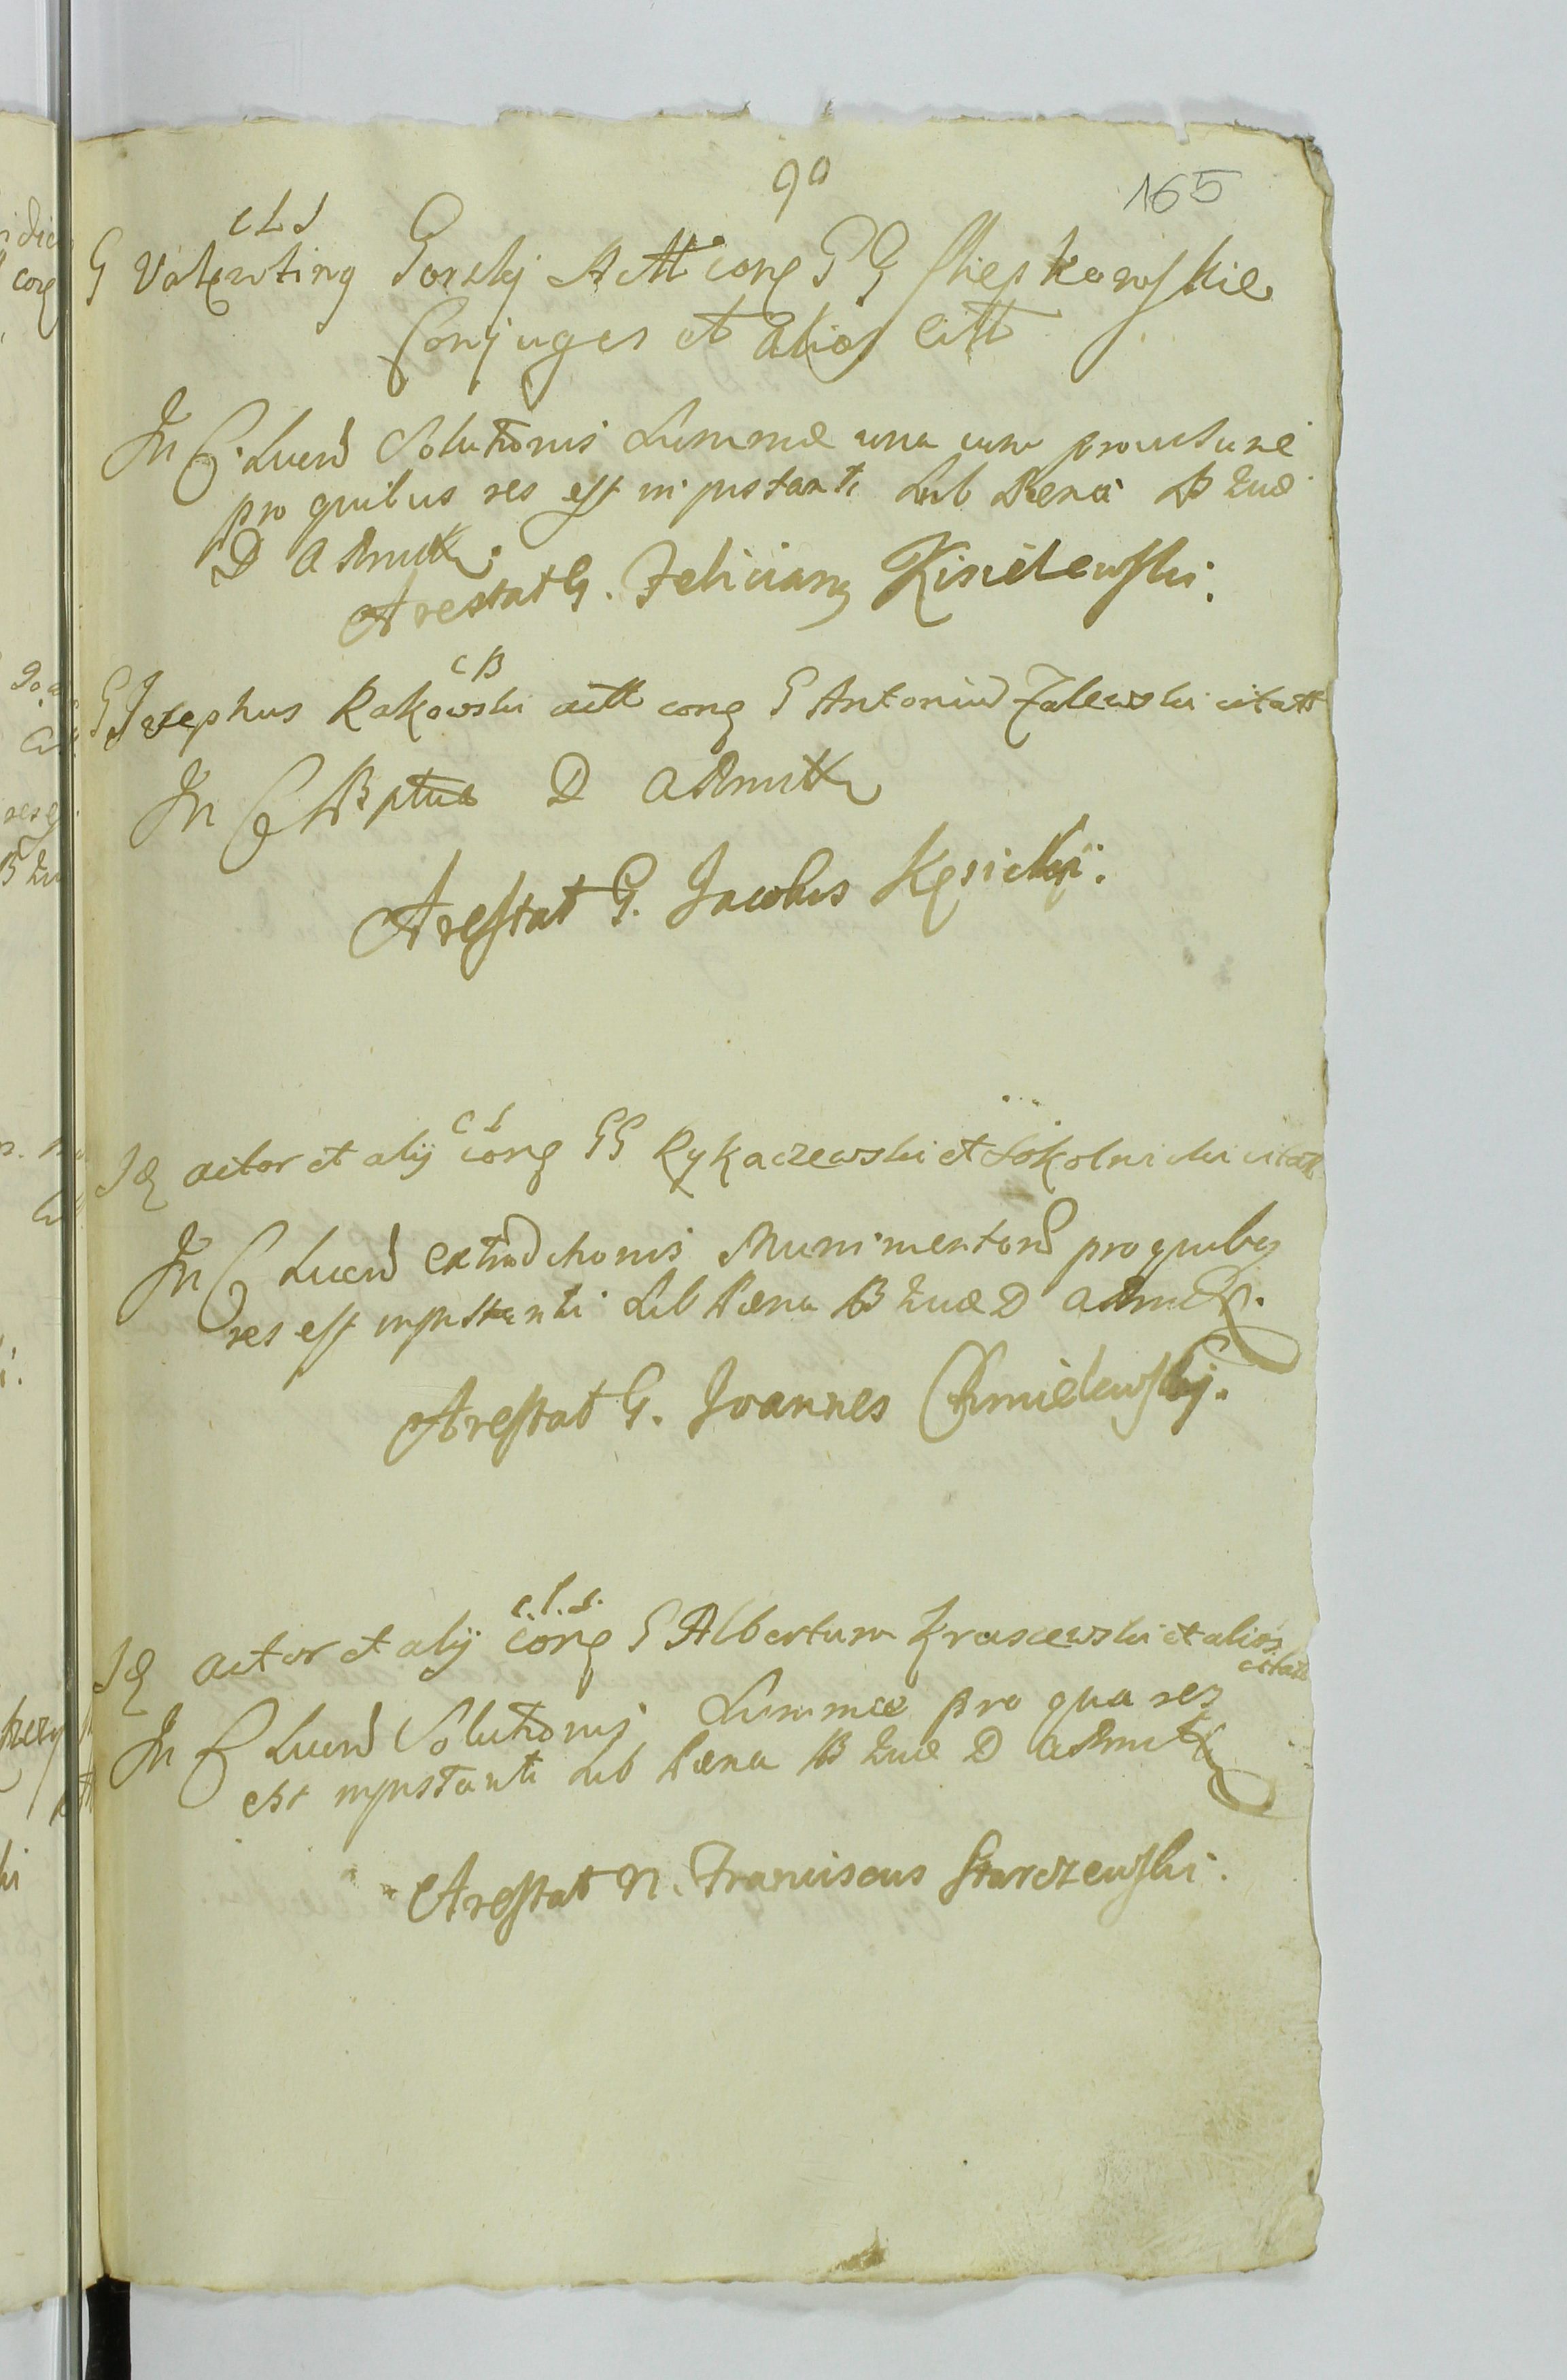 90
165
CLS
G Valenting Gorskj Actt cong G G
Conjuges et alios Citt
In C Lucrd Solutionis Summæ una cum
pro quibus res est in pnstanti Sub Pæna B
D Admitt
Arestat G. Feliciang Kisielewski.
CB
G Josephus Rakowski actt cong G Antoniud Zalewski citatt
In C B D Admitt
Arestat G. Jacobus Kęsickij.
CL
Id actor et alij cong GG Rykaczewski et Sokolnicki citatt
In C Lucrd extradictionis Munimentord pro quibg
res est inpnstanti Sub Pæna B D Admitt.
Arestat G. Joannes Chmielewskj.
C.L.S.
Id actor et alij cong G Albertum Kraszewski et alios
citatt
In C Lucrd Solutionis Summæ pro qua res
est inpnstanti Sub Pæna B D Admitt
Arestat N. Franciscus Starczewski.